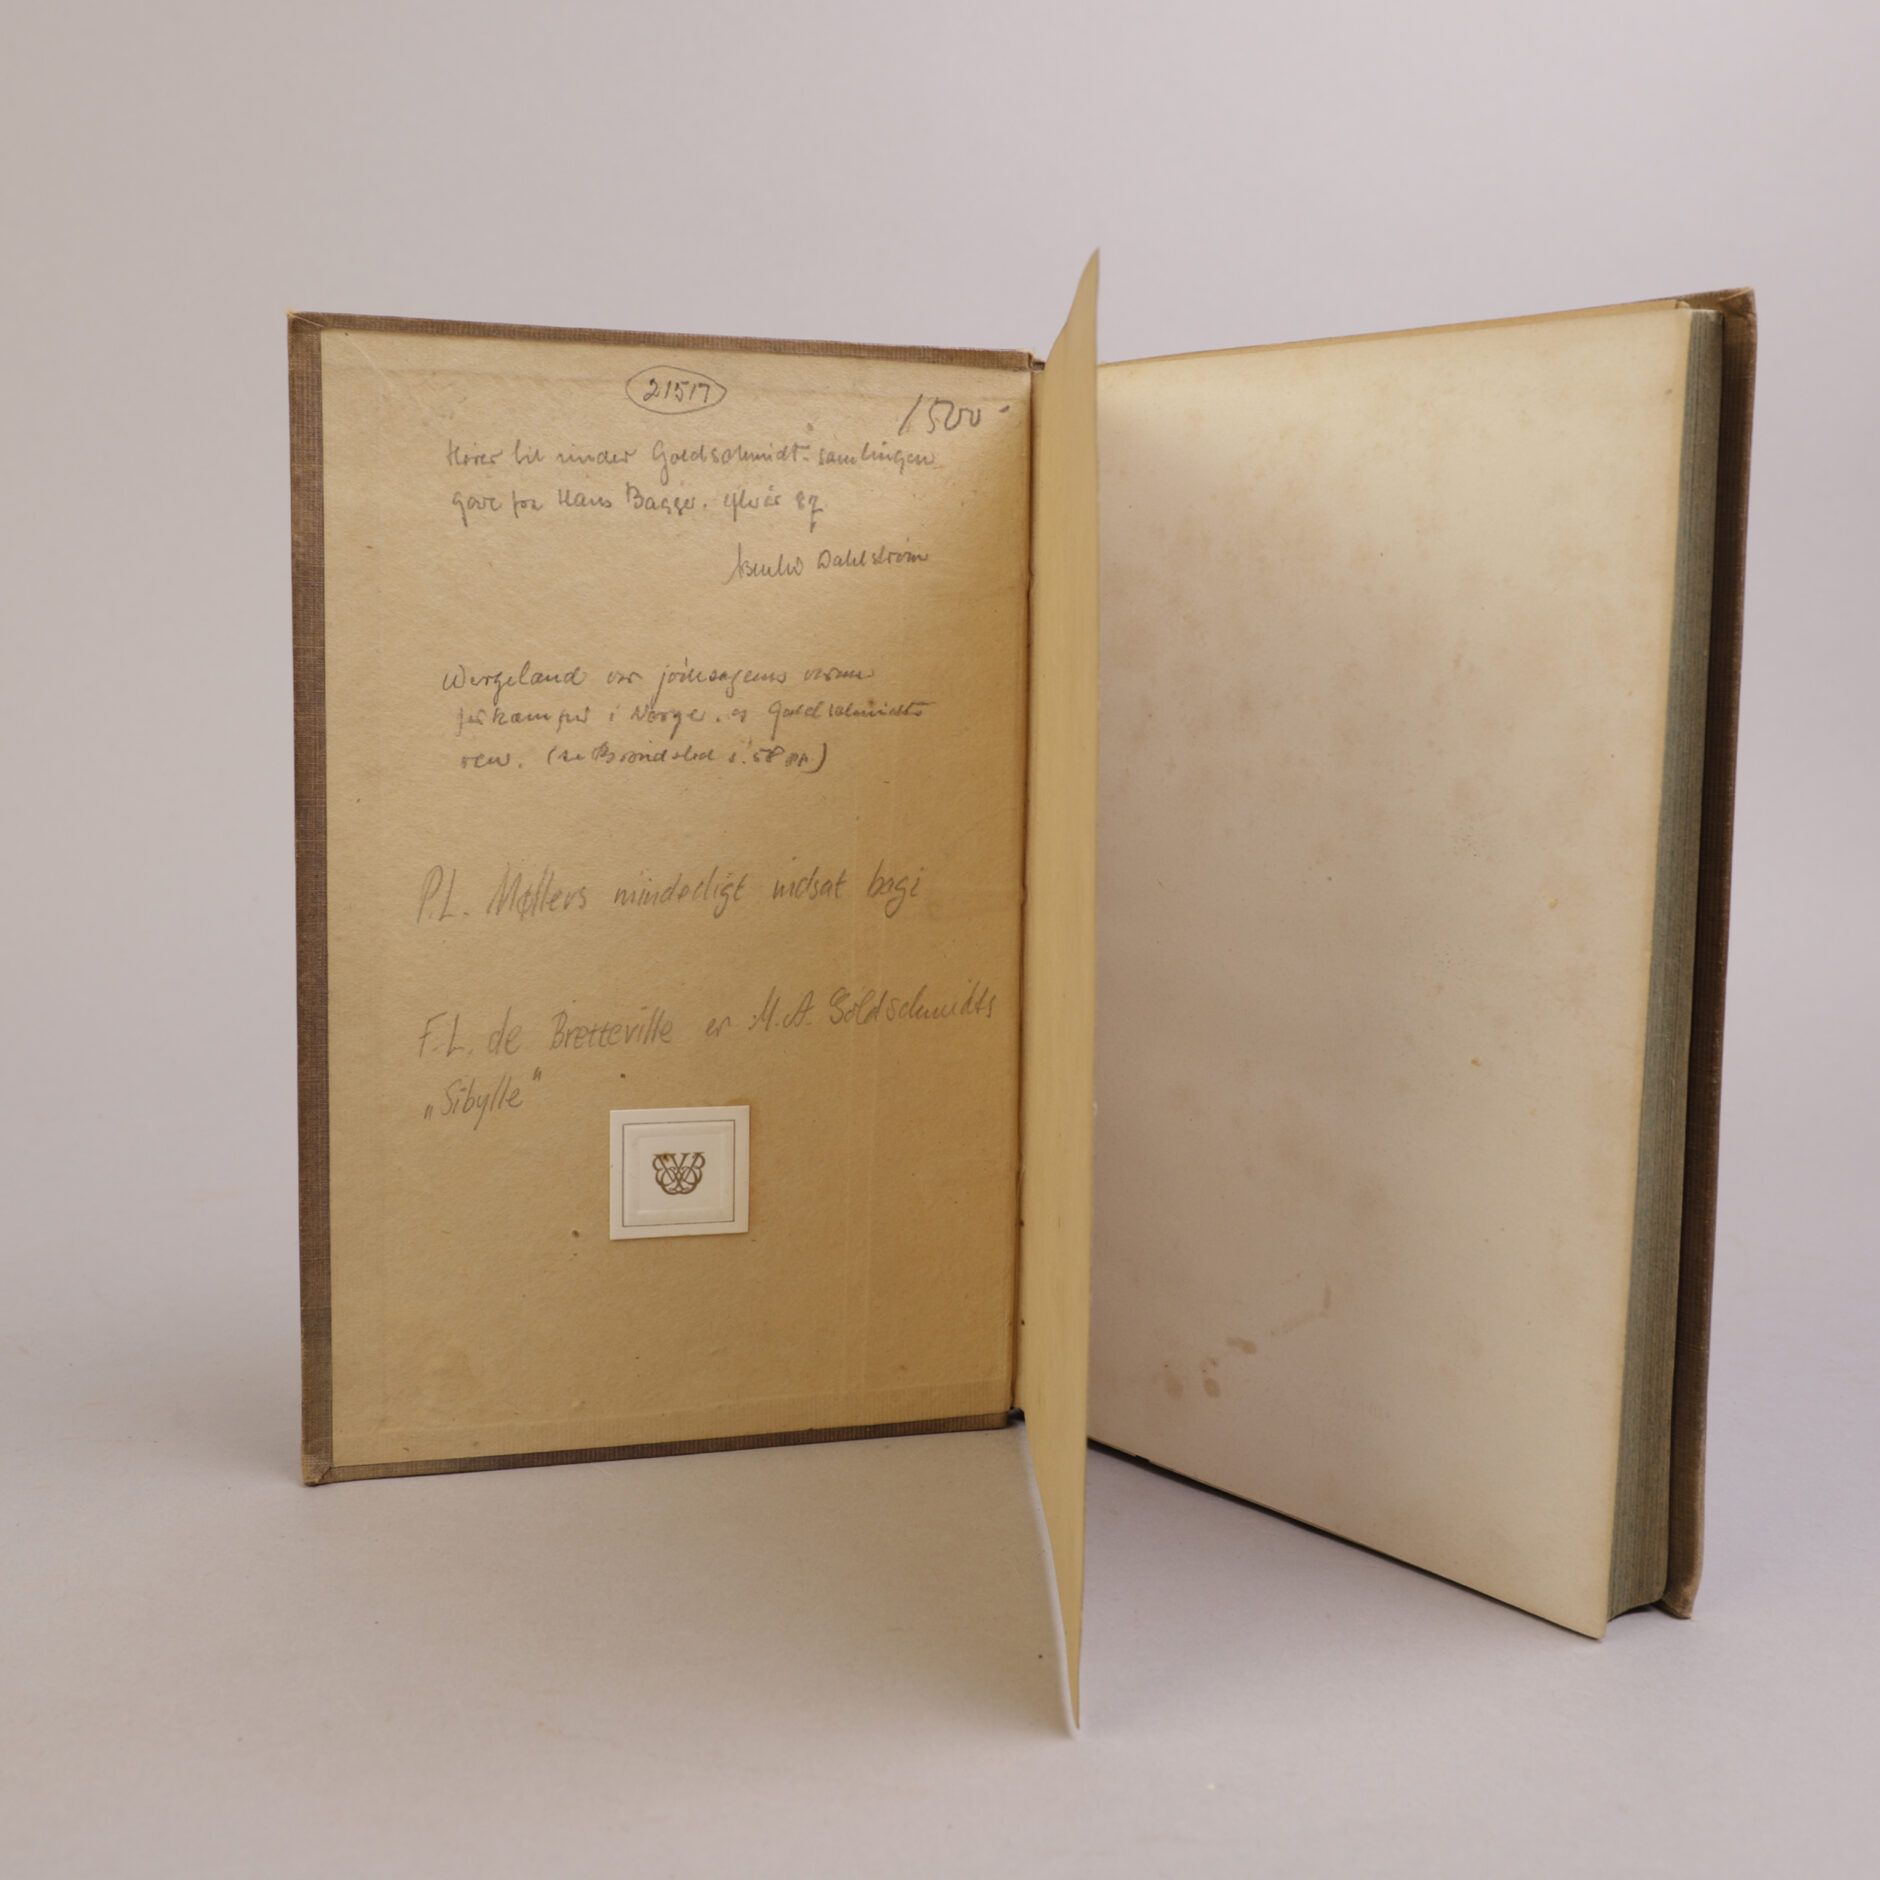 21517
1500
Hører til under Goldschmidt-samlingen
gave fra Hans Bagger. 87
Dahlstrøm
Wergeland var jødesagens varme
forkæmper i Norge. og Goldschmidts
ven. (se Brøndsted s. 58 )
P.L. Møllers mindedigt indsat bagi
F.L. de Bretteville er M.A. Goldschmidts
"Sibylle"